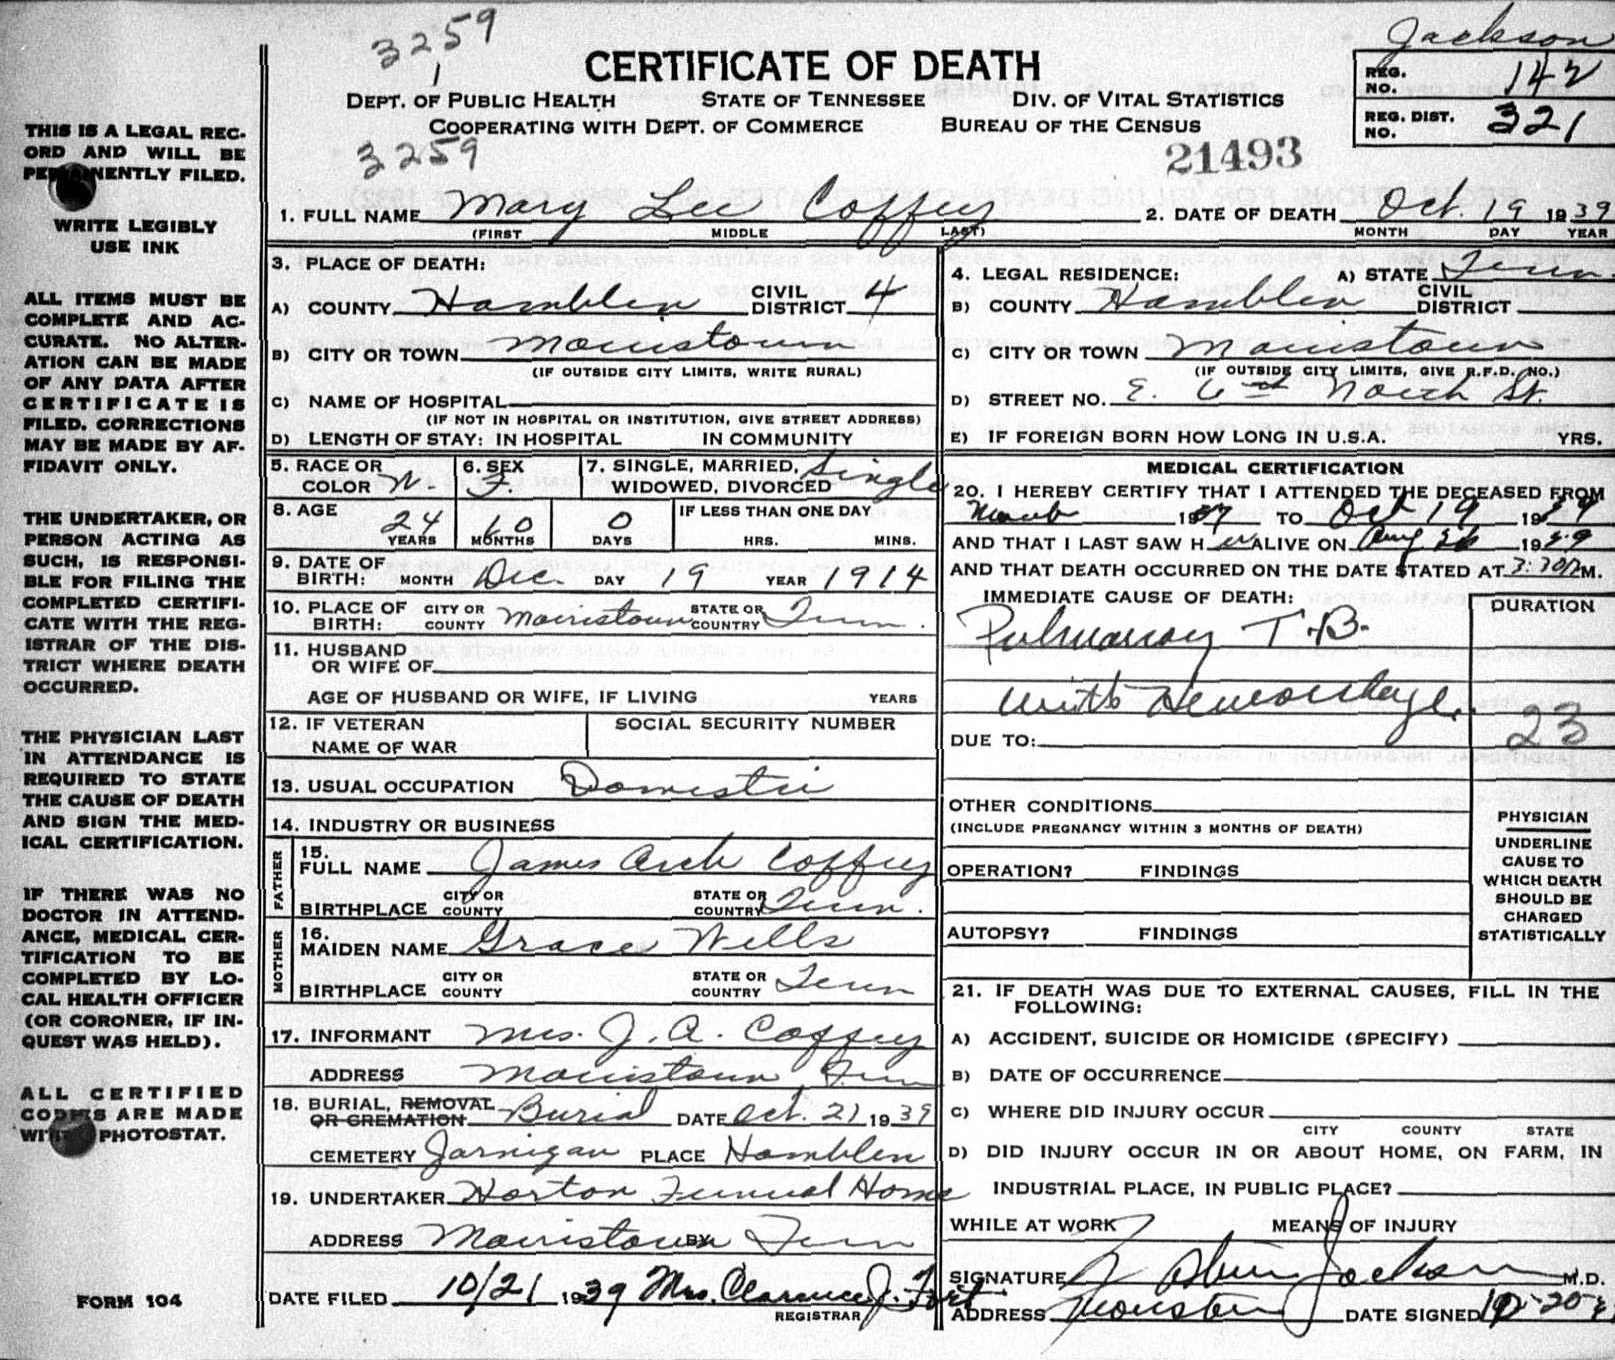 Jackson
3259
1
CERTIFICATE OF DEATH
REG. NO. 142
DEPT. OF PUBLIC HEALTH STATE OF TENNESSEE DIV. OF VITAL STATISTICS
REG. DIST. NO. 321
COOPERATING WITH DEPT. OF COMMERCE BUREAU OF THE CENSUS
3259
21493
THIS IS A LEGAL REC-
ORD AND WILL BE
PERMANENTLY FILED.
WRITE LEGIBLY
USE INK
ALL ITEMS MUST BE
COMPLETE AND AC-
CURATE. NO ALTER-
ATION CAN BE MADE
OF ANY DATA AFTER
CERTIFICATE IS
FILED. CORRECTIONS
MAY BE MADE BY AF-
FIDAVIT ONLY.
THE UNDERTAKER, OR
PERSON ACTING AS
SUCH, IS RESPONSI-
BLE FOR FILING THE
COMPLETED CERTIFI-
CATE WITH THE REG-
ISTRAR OF THE DIS-
TRICT WHERE DEATH
OCCURRED.
THE PHYSICIAN LAST
IN ATTENDANCE IS
REQUIRED TO STATE
THE CAUSE OF DEATH
AND SIGN THE MED-
ICAL CERTIFICATION.
IF THERE WAS NO
DOCTOR IN ATTEND-
ANCE, MEDICAL CER-
TIFICATION TO BE
COMPLETED BY LO-
CAL HEALTH OFFICER
(OR CORONER, IF IN-
QUEST WAS HELD).
ALL CERTIFIED
COPIES ARE MADE
WITH PHOTOSTAT.
FORM 104
1. FULL NAME Mary Lee Coffey 2. DATE OF DEATH Oct. 19 1939
(FIRST MIDDLE LAST) MONTH DAY YEAR
3. PLACE OF DEATH:
A) COUNTY Hamblen CIVIL DISTRICT 4
B) CITY OR TOWN Morristown
(IF OUTSIDE CITY LIMITS, WRITE RURAL)
C) NAME OF HOSPITAL
(IF NOT IN HOSPITAL OR INSTITUTION, GIVE STREET ADDRESS)
D) LENGTH OF STAY: IN HOSPITAL IN COMMUNITY
4. LEGAL RESIDENCE: A) STATE Tenn.
B) COUNTY Hamblen CIVIL DISTRICT
C) CITY OR TOWN Morristown
(IF OUTSIDE CITY LIMITS, GIVE R.F.D. NO.)
D) STREET NO. E. 6th North St.
E) IF FOREIGN BORN HOW LONG IN U.S.A. YRS.
5. RACE OR COLOR W. 6. SEX F. 7. SINGLE, MARRIED, WIDOWED, DIVORCED Single
8. AGE 24 YEARS 10 MONTHS 0 DAYS IF LESS THAN ONE DAY HRS. MINS.
9. DATE OF BIRTH: MONTH Dec. DAY 19 YEAR 1914
10. PLACE OF BIRTH: CITY OR COUNTY Morristown STATE OR COUNTRY Tenn.
11. HUSBAND OR WIFE OF
AGE OF HUSBAND OR WIFE, IF LIVING YEARS
12. IF VETERAN NAME OF WAR SOCIAL SECURITY NUMBER
13. USUAL OCCUPATION Domestic
14. INDUSTRY OR BUSINESS
FATHER
15. FULL NAME James Arch Coffey
BIRTHPLACE CITY OR COUNTY STATE OR COUNTRY Tenn.
MOTHER
16. MAIDEN NAME Grace Wells
BIRTHPLACE CITY OR COUNTY STATE OR COUNTRY Tenn
17. INFORMANT Mrs. J. A. Coffey
ADDRESS Morristown, Tenn
18. BURIAL, REMOVAL OR CREMATION Burial DATE Oct. 21 1939
CEMETERY Jarnigan PLACE Hamblen
19. UNDERTAKER Horton Funeral Home
ADDRESS Morristown BY Tenn
DATE FILED 10/21 1939 Mrs. Clarence J. Fort
REGISTRAR
MEDICAL CERTIFICATION
20. I HEREBY CERTIFY THAT I ATTENDED THE DECEASED FROM
1937 TO Oct 19 1939
AND THAT I LAST SAW HER ALIVE ON Aug 26 1939
AND THAT DEATH OCCURRED ON THE DATE STATED AT 3:30 M.
IMMEDIATE CAUSE OF DEATH: DURATION
Pulmonary T.B.
with Hemorrhage.
23
DUE TO:
OTHER CONDITIONS
(INCLUDE PREGNANCY WITHIN 3 MONTHS OF DEATH)
OPERATION? FINDINGS
AUTOPSY? FINDINGS
PHYSICIAN
UNDERLINE
CAUSE TO
WHICH DEATH
SHOULD BE
CHARGED
STATISTICALLY
21. IF DEATH WAS DUE TO EXTERNAL CAUSES, FILL IN THE
FOLLOWING:
A) ACCIDENT, SUICIDE OR HOMICIDE (SPECIFY)
B) DATE OF OCCURRENCE
C) WHERE DID INJURY OCCUR
CITY COUNTY STATE
D) DID INJURY OCCUR IN OR ABOUT HOME, ON FARM, IN
INDUSTRIAL PLACE, IN PUBLIC PLACE?
WHILE AT WORK MEANS OF INJURY
SIGNATURE Jackson M.D.
ADDRESS DATE SIGNED 10-20